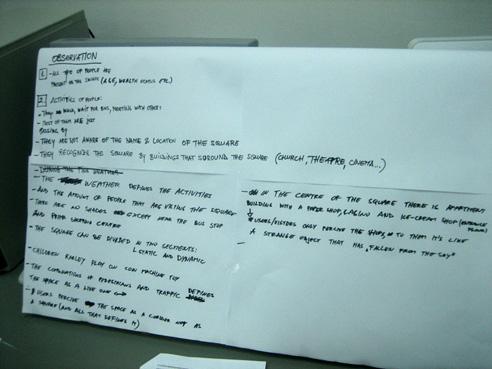 OBSERVATION
1. - ALL TYPE OF PEOPLE ARE
PRESENT IN THE SQUARE (AGE, WEALTH STATUS ETC.)
2. ACTIVITIES OF PEOPLE:
- THEY WALK, WAIT FOR BUS, MEETING WITH OTHERS
- MOST OF THEM ARE JUST
PASSING BY
- THEY ARE NOT AWARE OF THE NAME & LOCATION OF THE SQUARE
- THEY RECOGNIZE THE SQUARE BY BUILDINGS THAT SOROUND THE SQUARE (CHURCH, THEATRE, CINEMA...)
- THE WEATHER DEFINES THE ACTIVITIES
AND THE AMOUNT OF PEOPLE THAT ARE USING THE SQUARE
- THERE ARE NO SHADES EXCEPT NEAR THE BUS STOP
AND PRIOR SHOPPING CENTRE
- THE SQUARE CAN BE DIVIDED IN TWO SEGMENTS:
STATIC AND DYNAMIC
- CHILDREN RARLEY PLAY ON COIN MACHINE TOY
- THE COMBINATION OF PEDESTRIANS AND TRAFFIC DEFINES
THE SPACE AS A LIVE ONE
- USERS PERCIVE THE SPACE AS A CORIDOR NOT AS
A SQUARE (AND ALL THAT DEFINES IT)
- IN THE CENTRE OF THE SQUARE THERE IS APARTMENT
BUILDING WITH A SHOP, CASINO AND ICE-CREAM SHOP
USERS/VISITORS ONLY PERCIVE THE SHOPS, TO THEM IT'S LIKE
A STRANGE OBJECT THAT HAS "FALLEN FROM THE SKY"